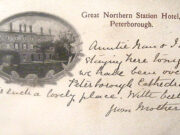 Great Northern Station Hotel,
Peterborough.
Auntie Nan & I
staying here tonight
we have been over
Peterborough Cathed
such a lovely place. Will
from Mother